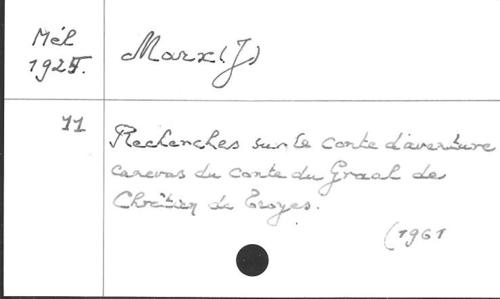 Mél
1925.
Marx (J)
11
Recherches sur le conte d'aventure
canevas du conte du Graal de
Chrétien de Troyes.
(1961